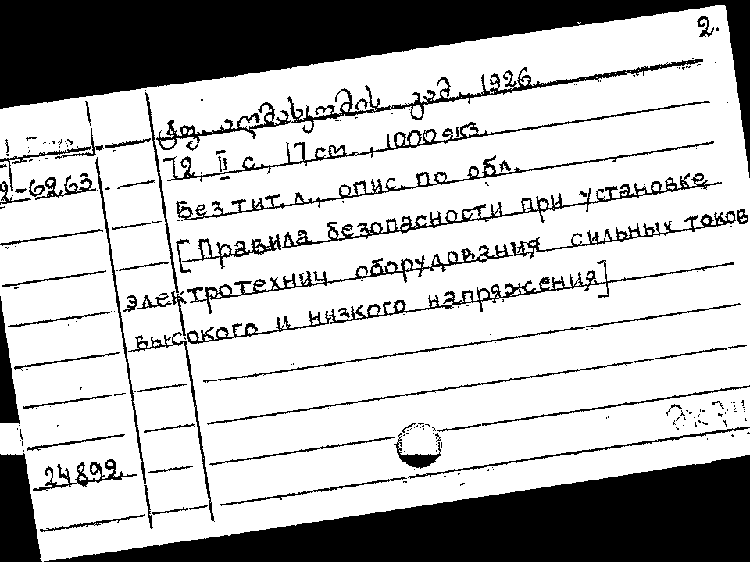 2.
ტფ. აღმასკომის გამ., 1926.
72, II с., 17 см., 1000 экз.
2-6263
Без тит. л., опис. по обл.
[Правила безопасности при установке
электротехнич. оборудования сильных токов
высокого и низкого напряжения]
24892